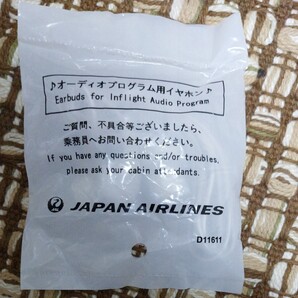 ♪オーディオプログラム用イヤホン♪
Earbuds for Inflight Audio Program
ご質問、不具合等ございましたら、
乗務員へお問い合わせください。
If you have any questions and/or troubles,
please ask your cabin attendants.
JAPAN AIRLINES
D11611